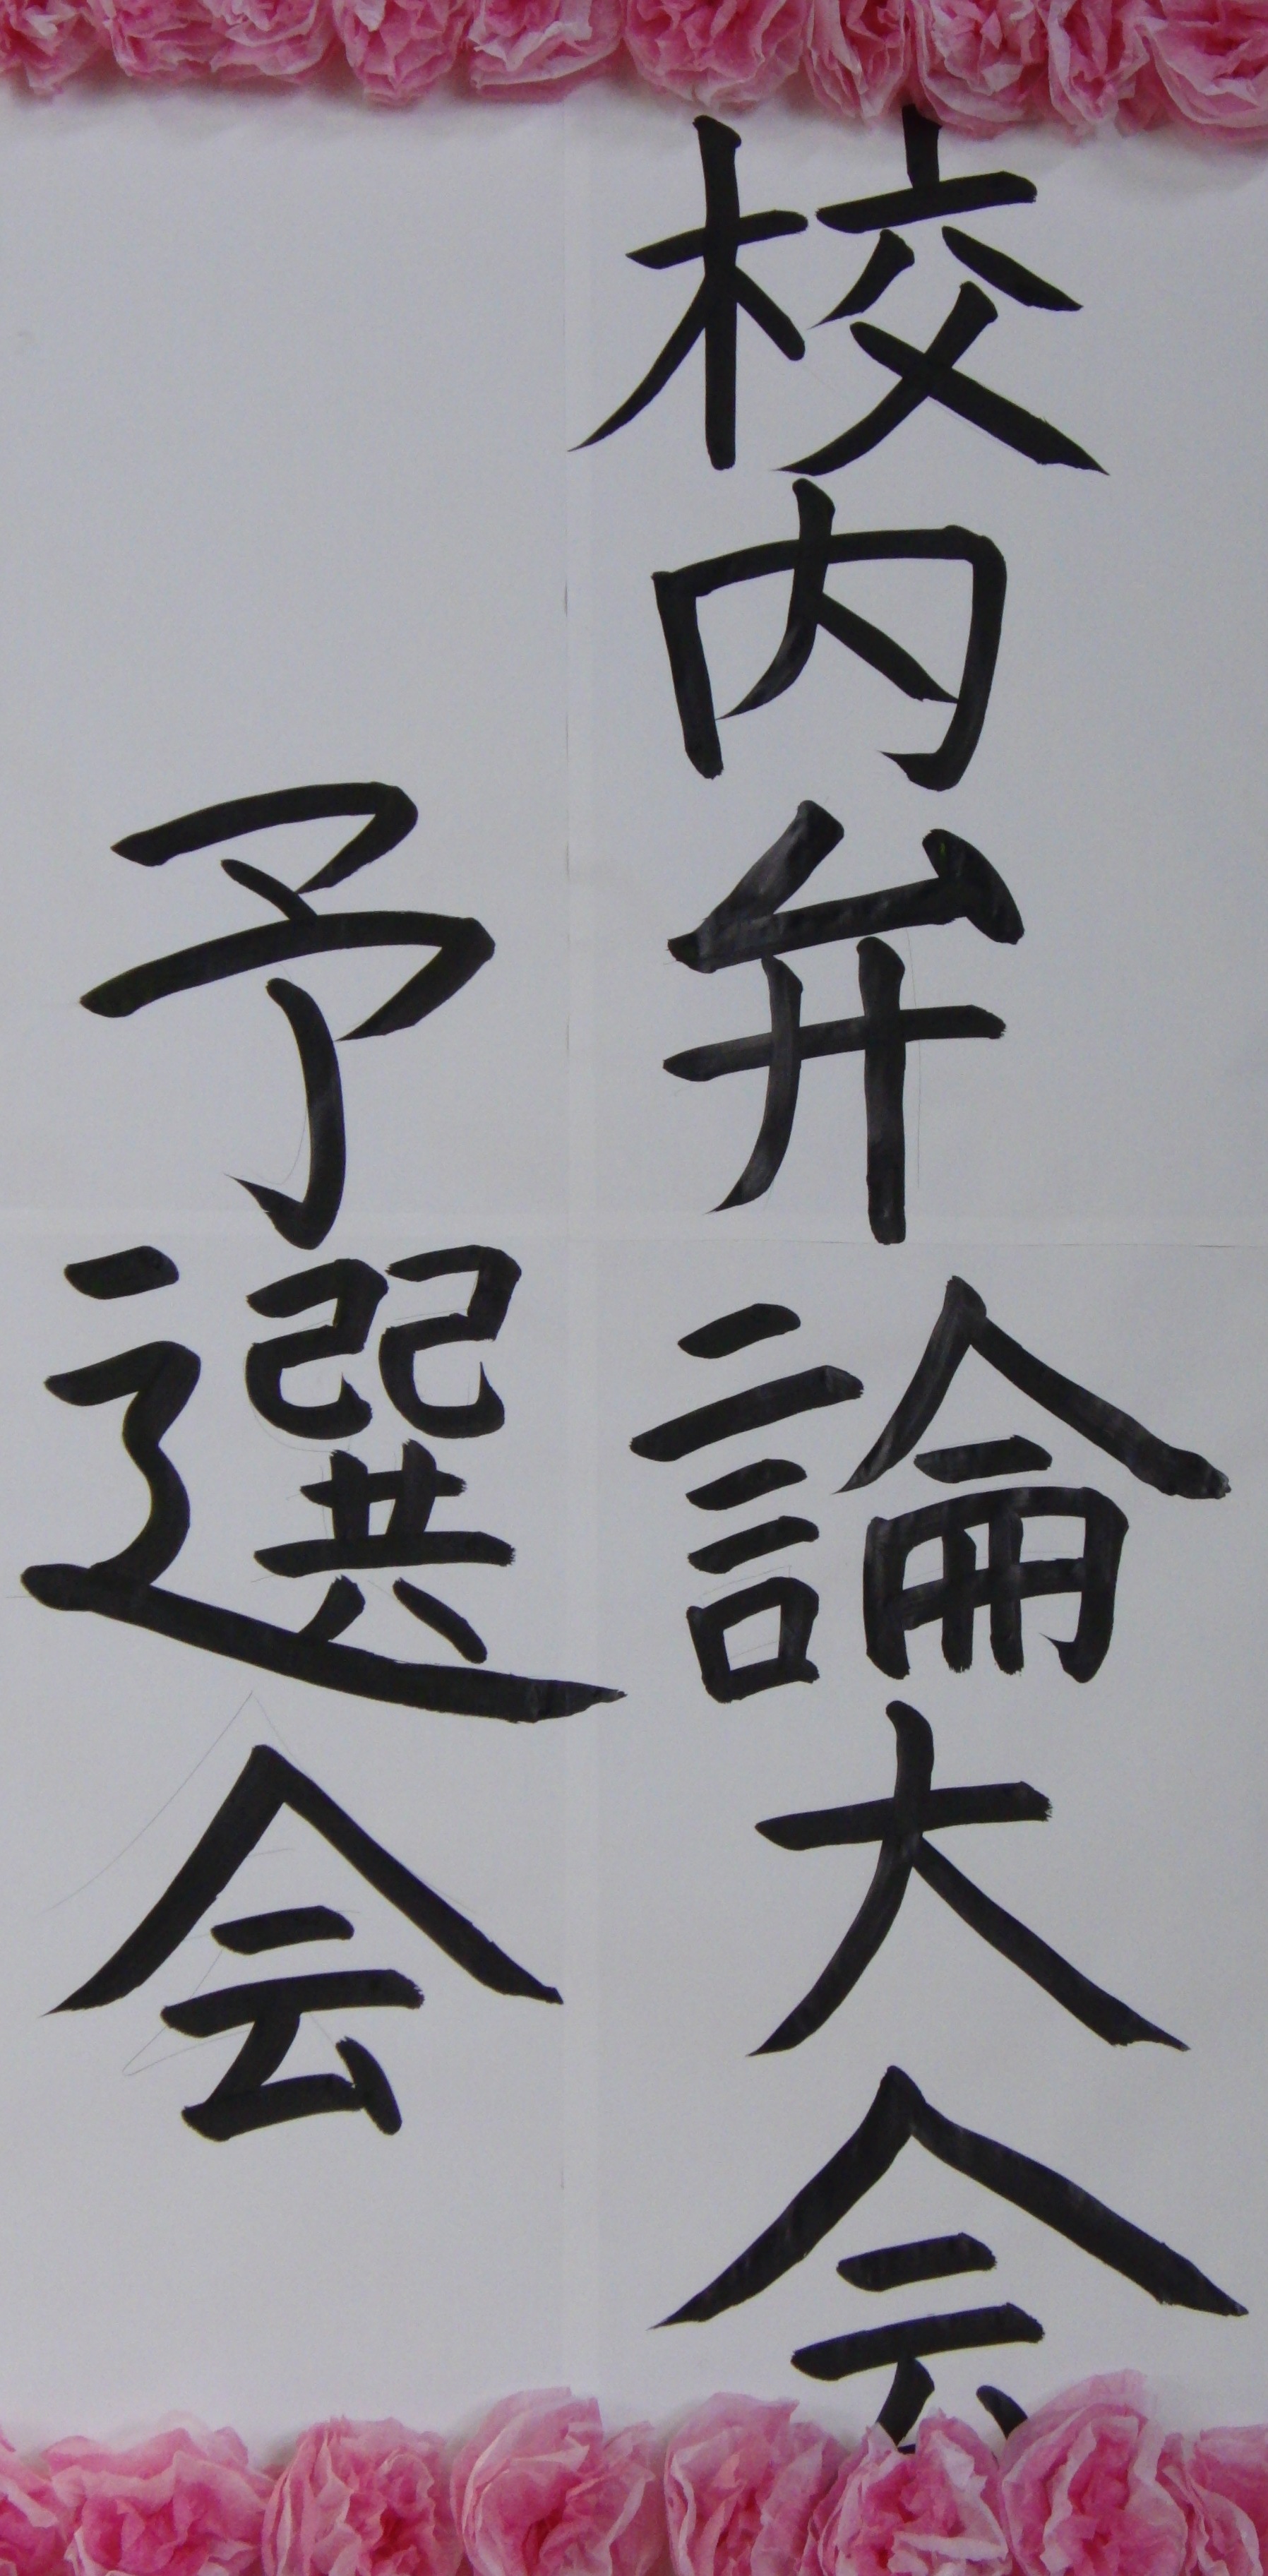 校内弁論大会
予選会